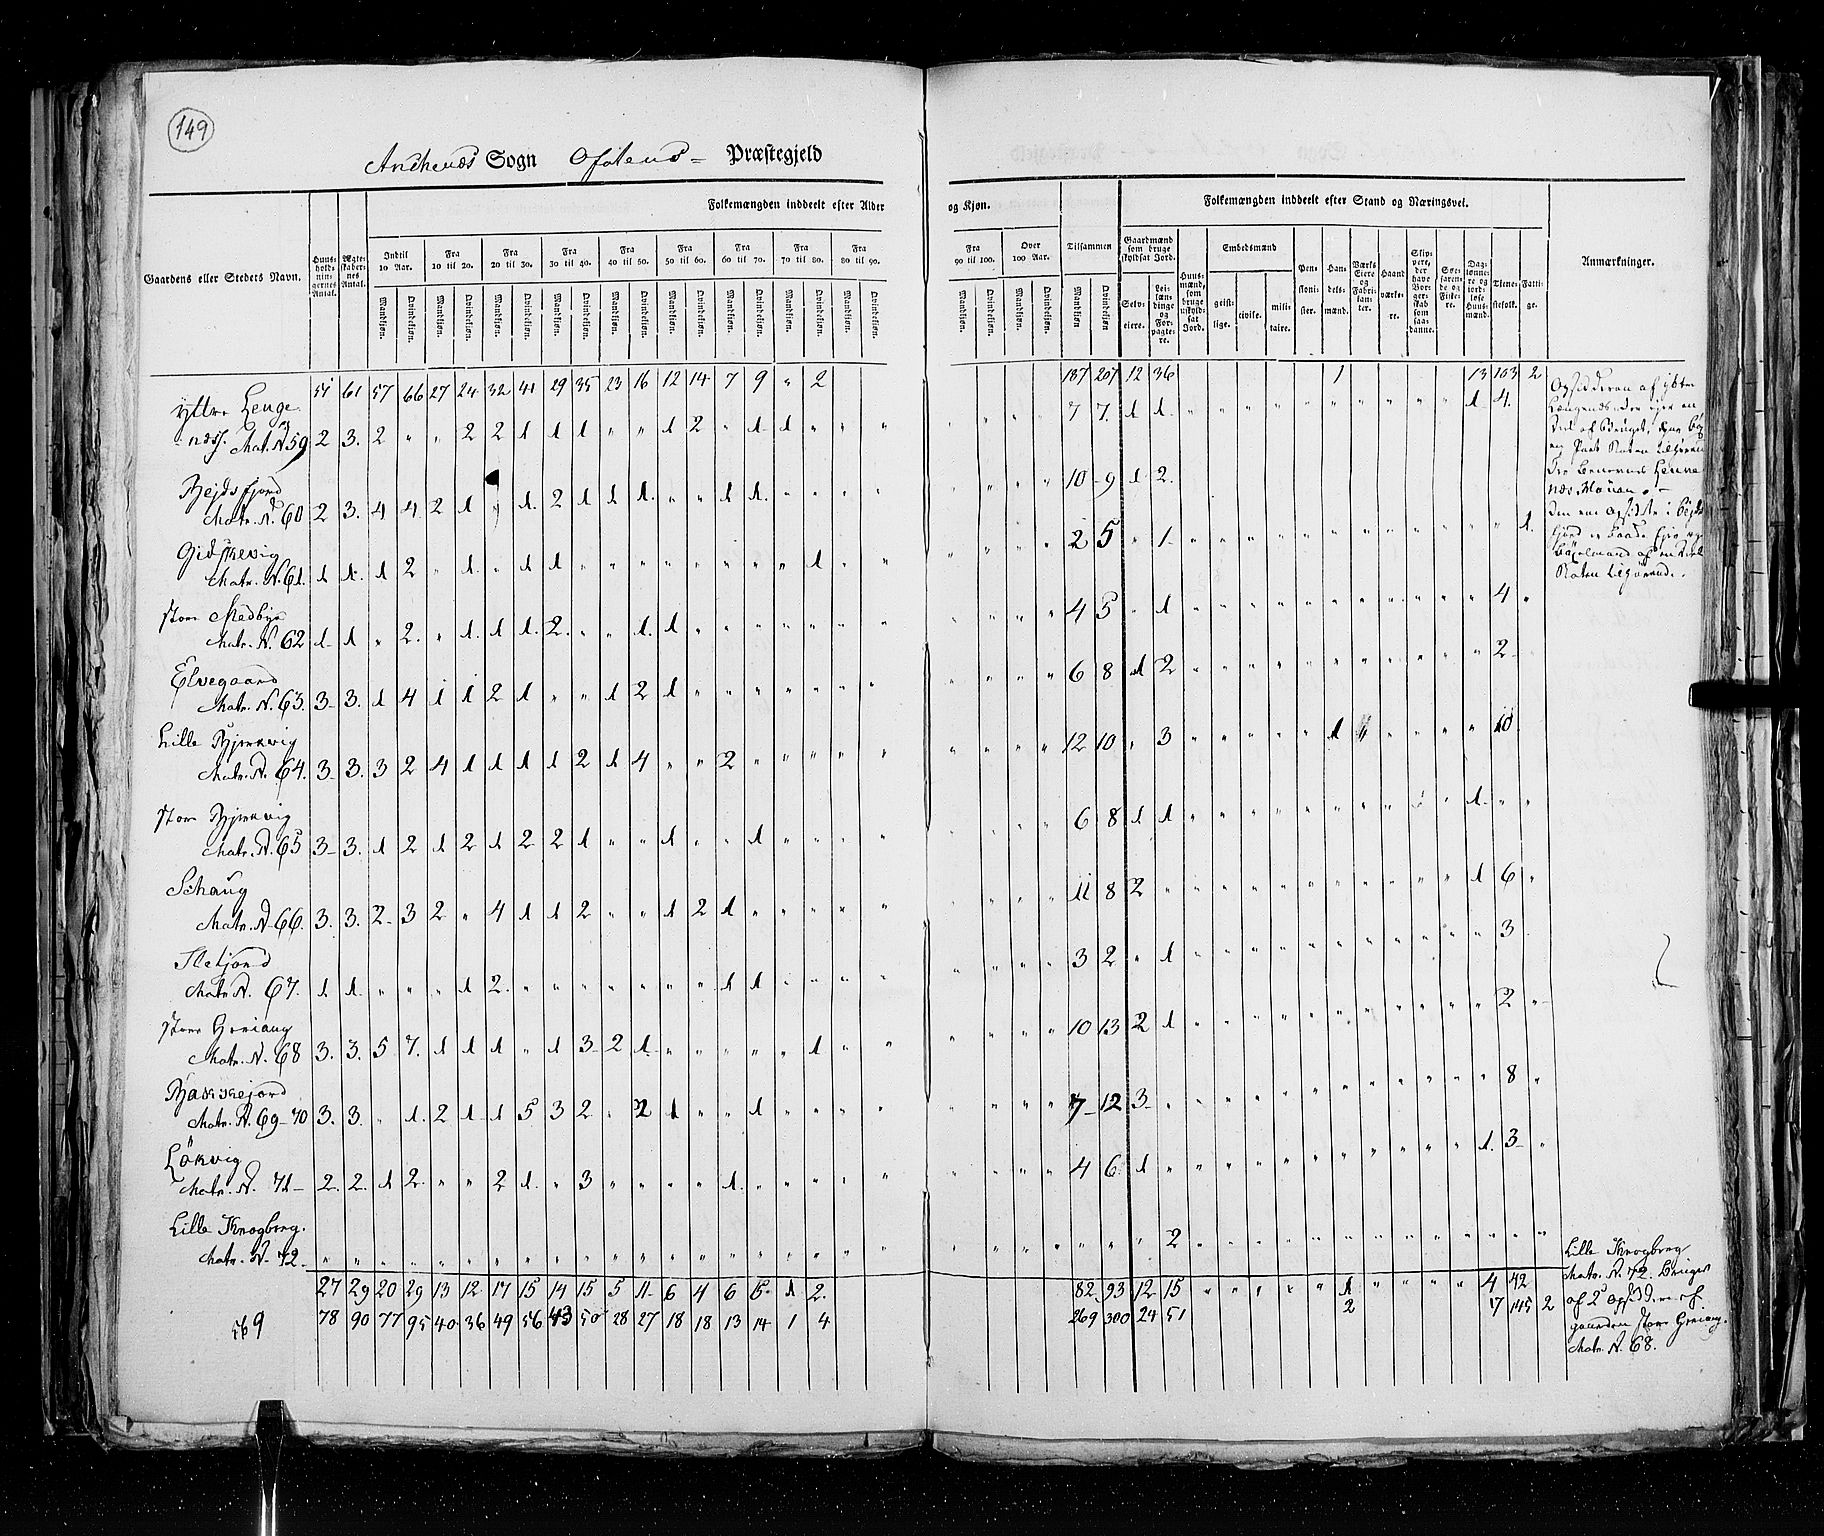 149
Anckenæs Sogn Ofotens Præstegjeld
Folkemængden inddeelt efter Alder og Kjøn.
Folkemængden inddeelt efter Stand og Næringsvei.
Gaardens eller Stedets Navn.
Huusholdningernes Antal.
Ægteskabernes Antal.
Indtil 10 Aar.
Fra 10 til 20.
Fra 20 til 30.
Fra 30 til 40.
Fra 40 til 50.
Fra 50 til 60.
Fra 60 til 70.
Fra 70 til 80.
Fra 80 til 90.
Fra 90 til 100.
Over 100 Aar.
Tilsammen
Mandkjøn. Qvindekjøn.
Gaardmænd som bruge skyldsat Jord.
Selveiere.
Leilændinge og Forpagtere.
Huusmænd, som bruge uskyldsat Jord.
Embedsmænd
geistlige.
civile.
militaire.
Pensionister.
Handelsmænd.
Værks Eiere og Fabrikanter.
Haandværkere.
Skippere, der have Borgerskab som saadanne.
Søefarende og Fiskere.
Daglønnere og jordløse Huusmænd.
Tienestefolk.
Fattige.
Anmærkninger.
51 61 57 66 27 24 32 41 29 35 23 16 12 14 7 9 " 2 187 207 12 36 1 13 103 2
Yttre Lenge
næs. Mat. N 59 2 3. 2 " " 2 2 1 1 1 " " 1 2 " 1 1 " " " 7 7. 1 1. 1 4.
Bejdsfjord
Matr. N. 60 2 3. 4 4 2 1 " 1. 2 1 1 1. " " 1 1. 10 9 1 2.
Matr. N. 61. 1 1. 1 2 " 1. " 1 1 " " " " " " " " 1 " " 2 5 " 1. 1.
store Medbye
Matr. N. 62 1 1 " 2. " 1. 1 1. 2. " " 1. 1 4 5 " 1 4 "
Elvegaard
Matr. N. 63. 3 3. 1 4 1 1 2 1 " " 1 2 1 6 8 1 2 2
Lille Bjerkvig
Matr. N. 64. 3 3. 3 2 4 1 1 1 1 2 1 4 " " 2 12 10 " 3 1 " 10
store Bjerkvig
Matr. N. 65 3 3. 1 2 1 2 1 2 2 1 " " 1 " " 1 6 8 1 1 1. " "
Schaug
Matr. N. 66. 3. 3. 2 3 2 " 4 1 1 2 " " 1 2 1 11 8 2 1 6 "
Matr. N. 67. 1 1. " " " 1 2. " " " " " " " 1 1 3 2 " 1 3
store Greiang
Matr. N. 68 3. 3. 5 7. 1 1 1 " 1 3 2 1 " " " " " 1 " " 10 13 2 1 2 "
Matr. N. 69-70 3. 3. " 1. 2 1 1 5 3 2 " 2 1 " " 1 7 12 3 8 "
Lökvig
Matr. N. 71 2. 2. 1 2. " " 2 1. " 3 " " " " 1. 4 6 1 1. 3 "
Lille Krogberg.
Matr. N. 72. 2
27 29 20 29 13 12 17 15 14 15 5 11 6 4 6 5 1 2. 82. 93 12 15 1 4 42
78 90 77 95 40 36 49 56 43 50 28 27 18 18 13 14 1 4 269 300 24 51 2 17 145 2
569
Opsidderen af Ydtre
Lille Krogberg
Matr. N. 72. bruges
af 2 Opsiddere af
gaarden store Greiang.
Matr. N. 68.